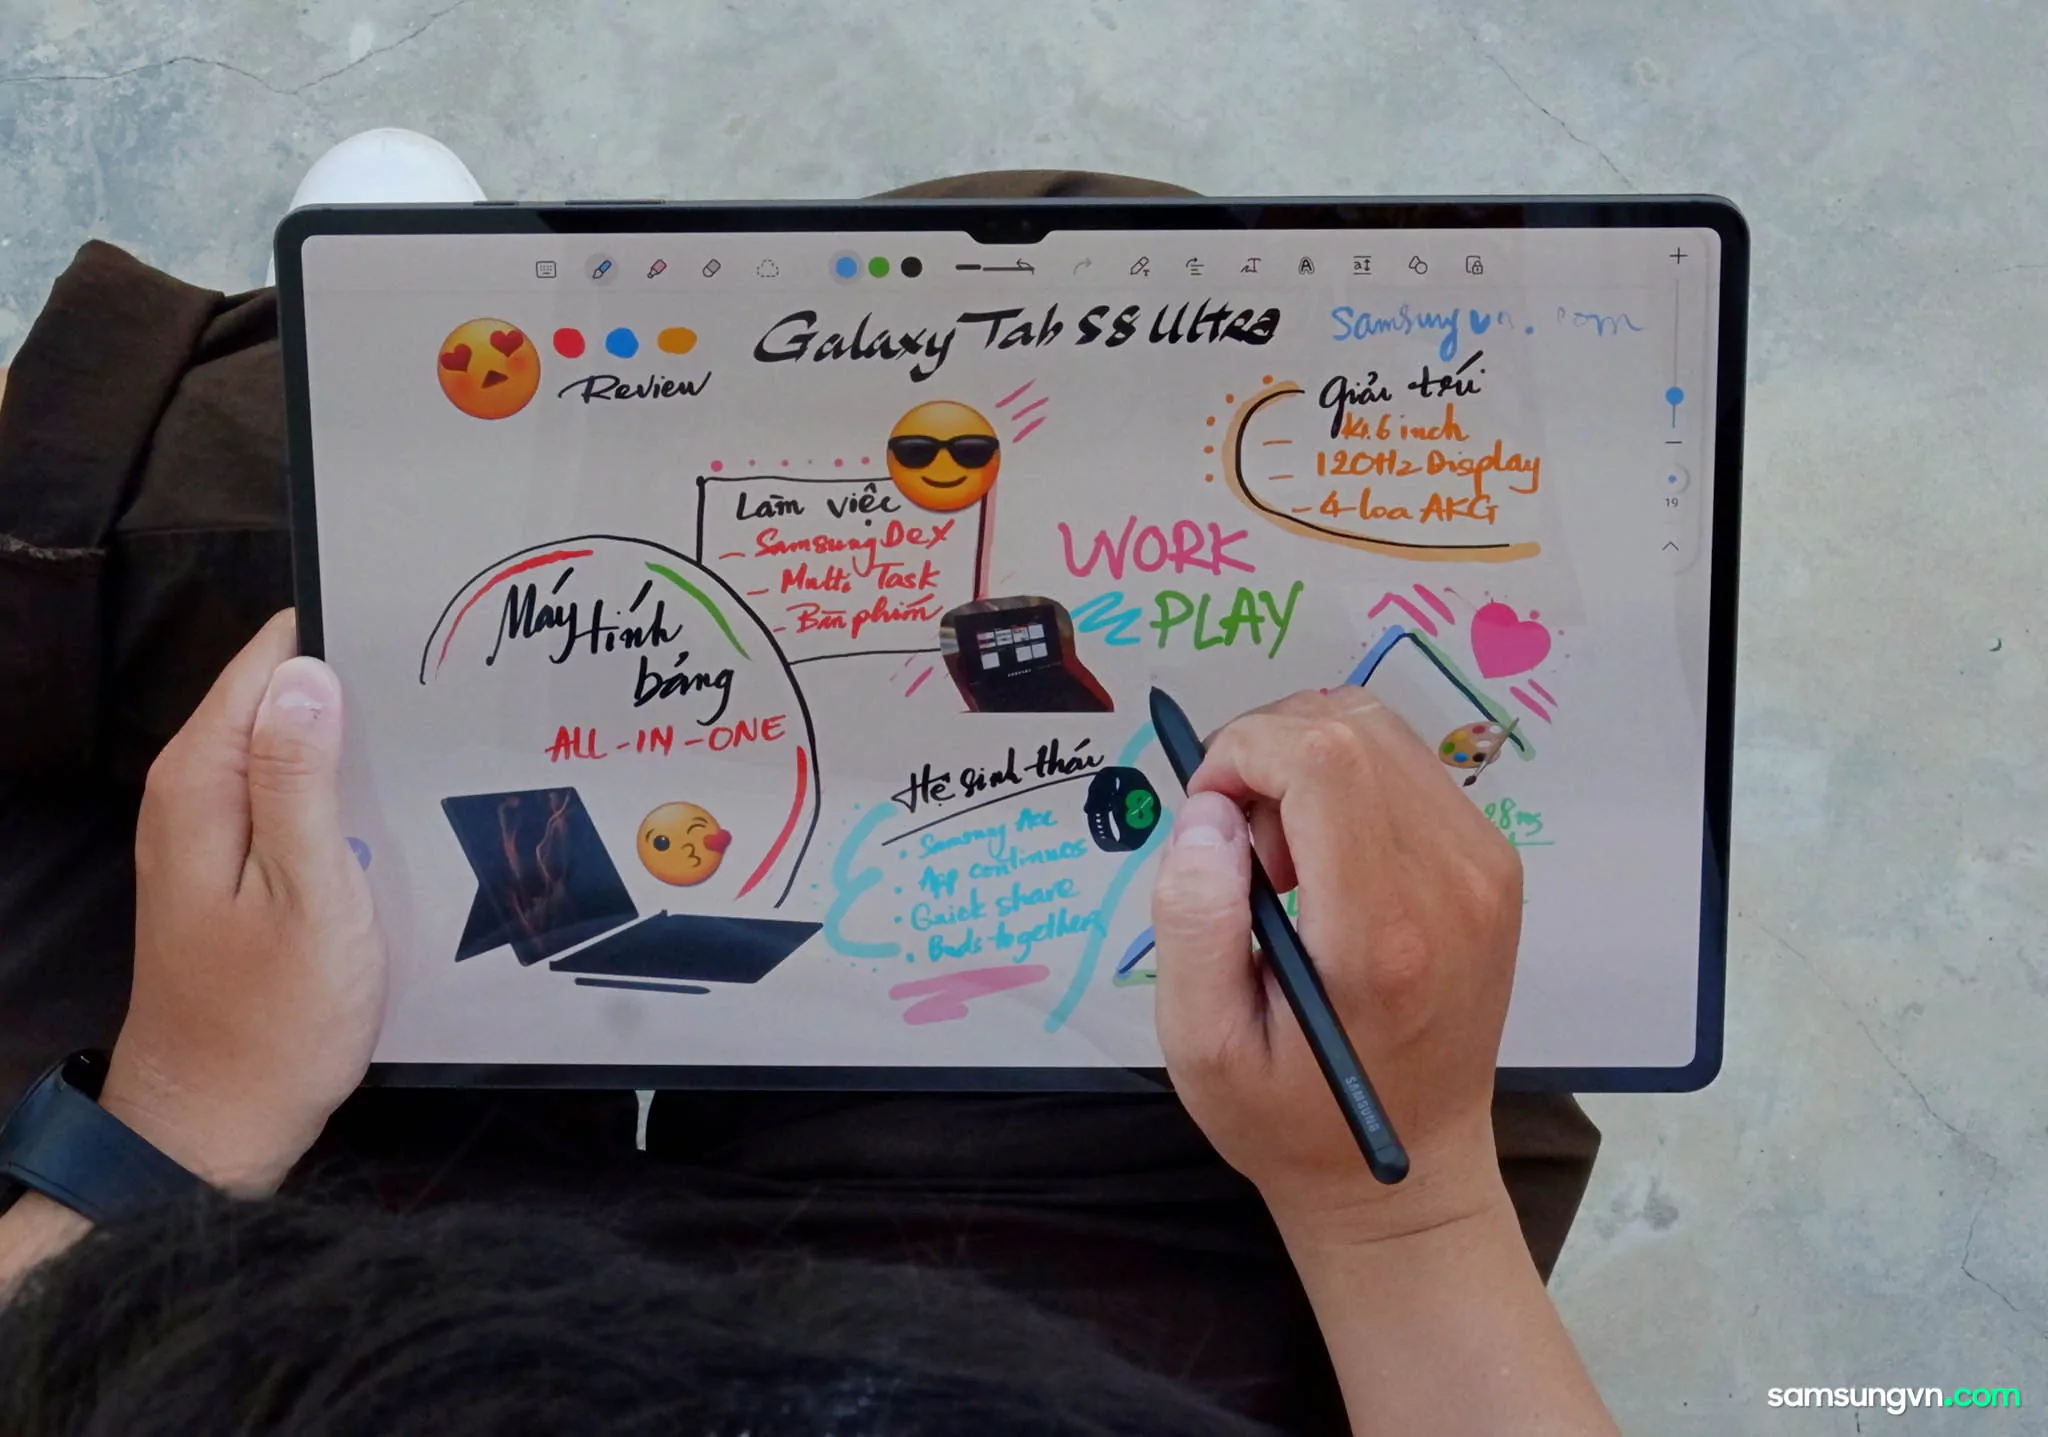 Galaxy Tab S8 Ultra
Samsungvn.com
Review
Giải trí
14.6 inch
- 120Hz Display
- 4 loa AKG
Làm việc
- Samsung Dex
- Multi Task
- Bàn phím
WORK
PLAY
Máy tính
bảng
ALL-IN-ONE
Hệ sinh thái
• Samsung Acc
• App continuos
• Quick share
• Buds together
2.8ms
19
SAMSUNG
samsungvn.com